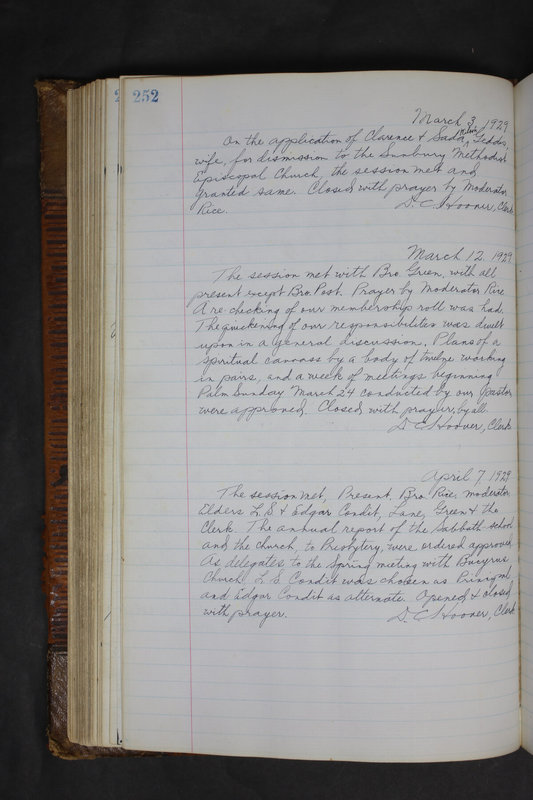 252
March 3, 1929
On the application of Clarence & Sada Geddis,
wife, for dismission to the Sunbury Methodist
Episcopal Church, the session met and
granted same. Closed with prayer by Moderator
Rice. D. C. Hoover, Clerk
March 12. 1929
The session met with Bro. Green, with all
present except Bro. Post. Prayer by Moderator Rice
A re-checking of our membership roll was had.
The quickening of our responsibilities was dwelt
upon in a general discussion. Plans of a
spiritual canvass by a body of twelve working
in pairs, and a week of meetings beginning
Palm Sunday March 24 conducted by our pastor
were approved. Closed with prayer, by all.
D. C. Hoover, Clerk
April 7 1929
The session met, Present, Bro. Rice, moderator,
Elders L. S. & Edgar Condit, Lane, Green & the
Clerk. The annual report of the Sabbath-school
and the church, to Presbytery, were ordered approved
As delegates to the Spring meeting with Bucyrus
Church L. S. Condit was chosen as Principal
and Edgar Condit as alternate. Opened & closed
with prayer. D. C. Hoover, Clerk